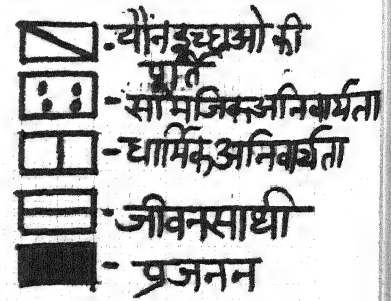 - यौंन इच्छाओ की
पूर्ति
- सामाजिक अनिवार्यता
- धार्मिक अनिवार्यता
- जीवनसाथी
- प्रजनन